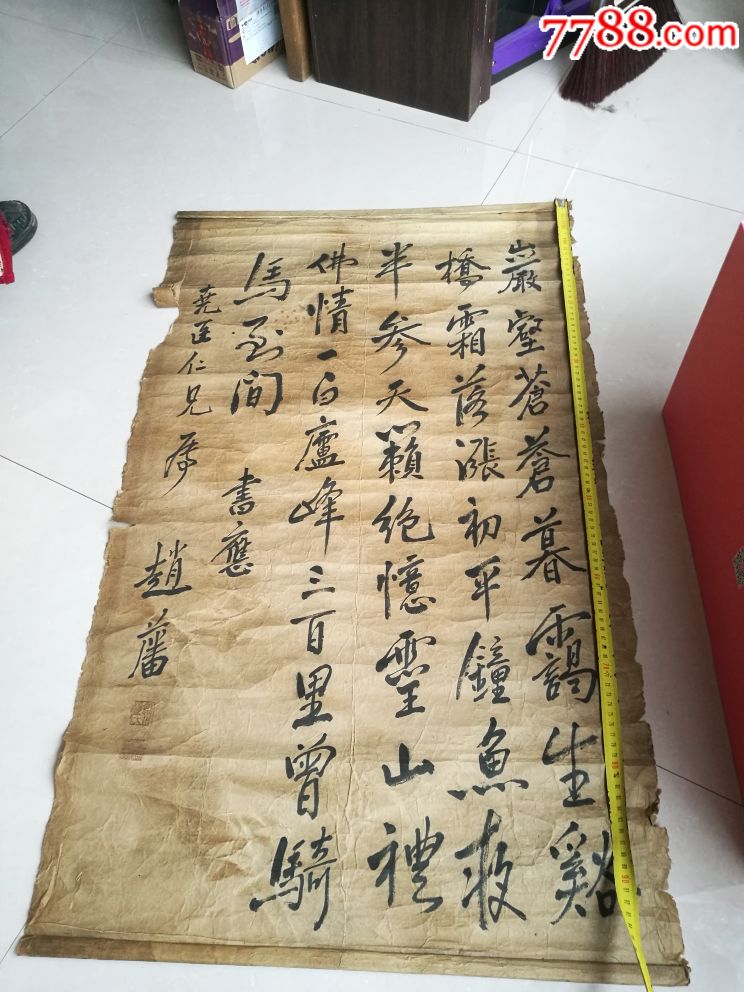 7788.com
巖壑蒼蒼暮靄生谿
橋霜落漲初平鐘魚
半參天籟絕憶靈山禮
佛情一白廬峰三百里曾騎
馬到間
書應
堯臣仁兄屬
趙藩